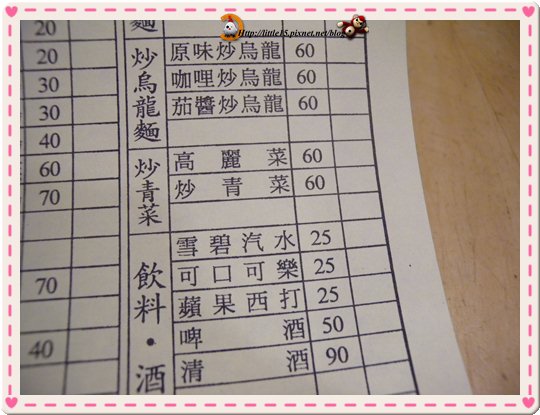 Http://little15.pixnet.net/blog
20
20
30
30
40
60
70
70
40
麵
炒烏龍麵
原味炒烏龍 60
咖哩炒烏龍 60
茄醬炒烏龍 60
炒青菜
高麗菜 60
炒青菜 60
飲料・酒
雪碧汽水 25
可口可樂 25
蘋果西打 25
啤酒 50
清酒 90